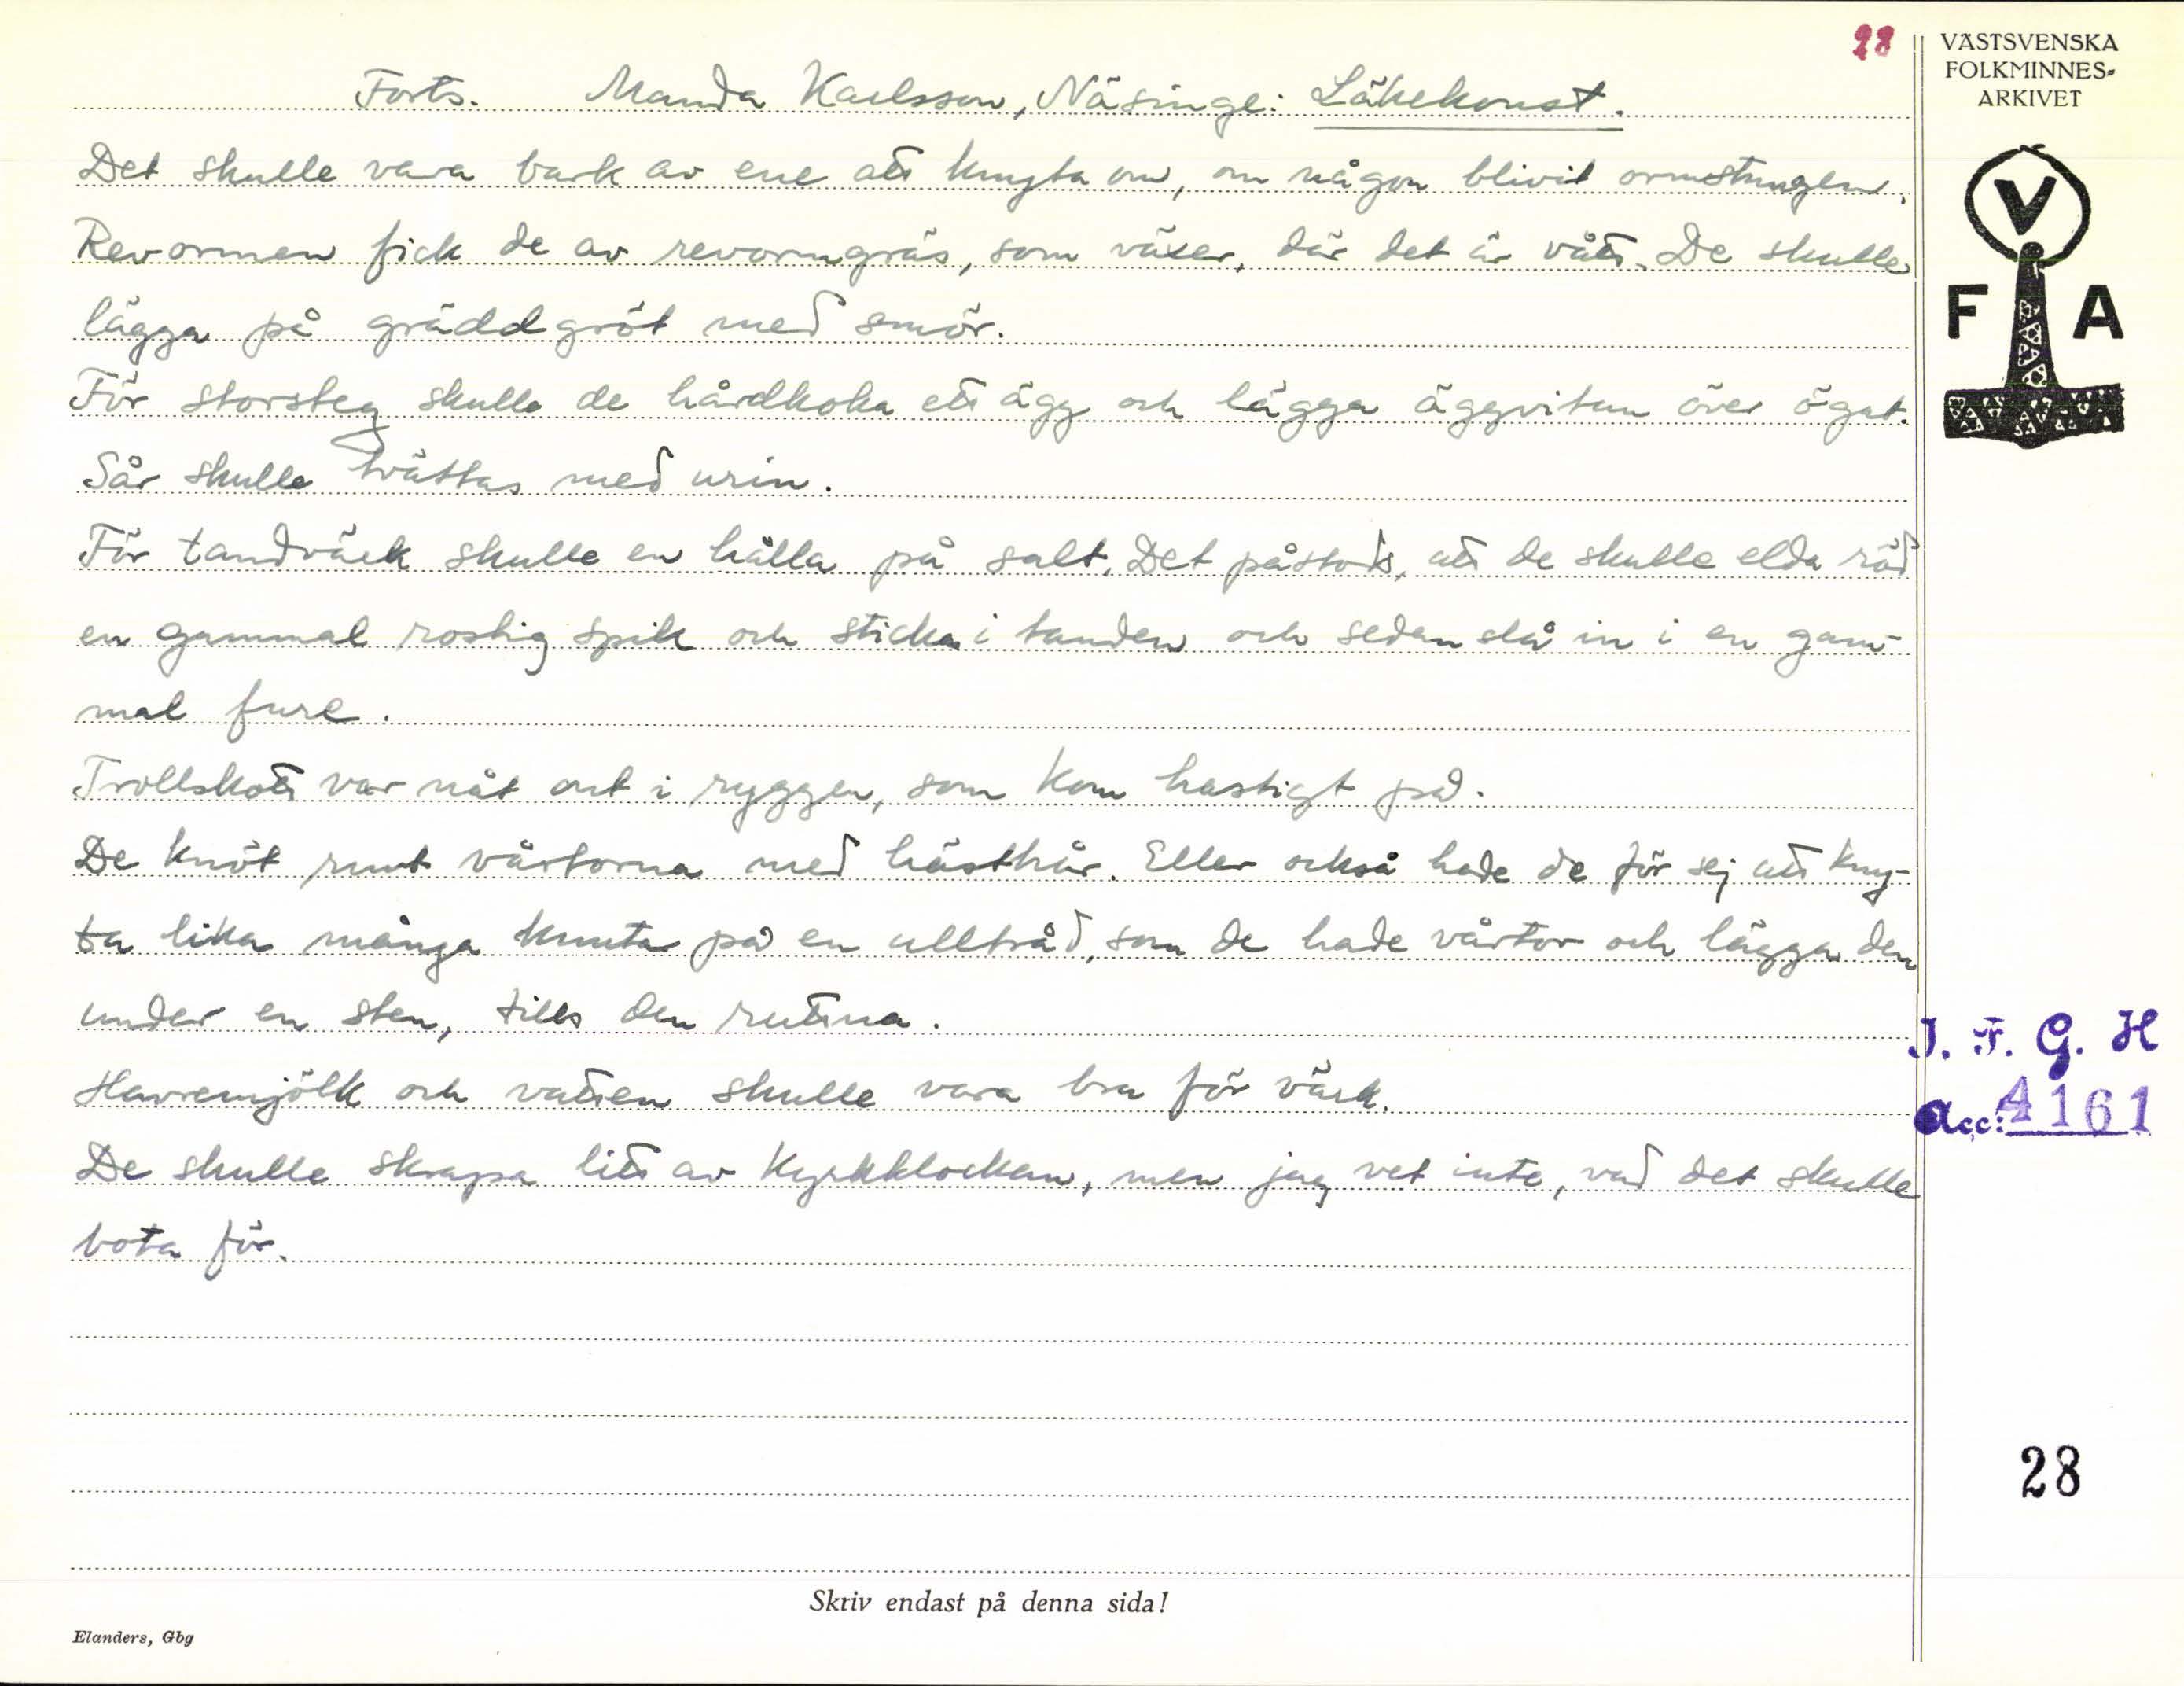 28
VÄSTSVENSKA
FOLKMINNES-
ARKIVET
Forts. Manda Karlsson, Näsinge: Läkekonst.
Det skulle vara bark av ene att knyta om, om någon blivit ormstungen.
Revormen fick de av revormgräs, som växer, där det är vått. De skulle
lägga på gräddgröt med smör.
För storsteg skulle de hårdkoka ett ägg och lägga äggvitan över ögat.
Sår skulle tvättas med urin.
För tandvärk skulle en hålla på salt. Det påstods, att de skulle elda röd
en gammal rostig spik och sticka i tanden och sedan slå in i en gam-
mal fure.
Trollskott var nåt ont i ryggen, som kom hastigt på.
De knöt runt vårtorna med hästhår. Eller också hade de för sej att kny-
ta lika många knutar på en ulltråd, som de hade vårtor och lägga den
under en sten, tills den ruttna.
Havremjölk och vatten skulle vara bra för värk.
De skulle skrapa litt av kyrkklockan, men jag vet inte, vad det skulle
bota för.
V
F A
I. F. G. H
Acc: 4161
28
Skriv endast på denna sida!
Elanders, Gbg